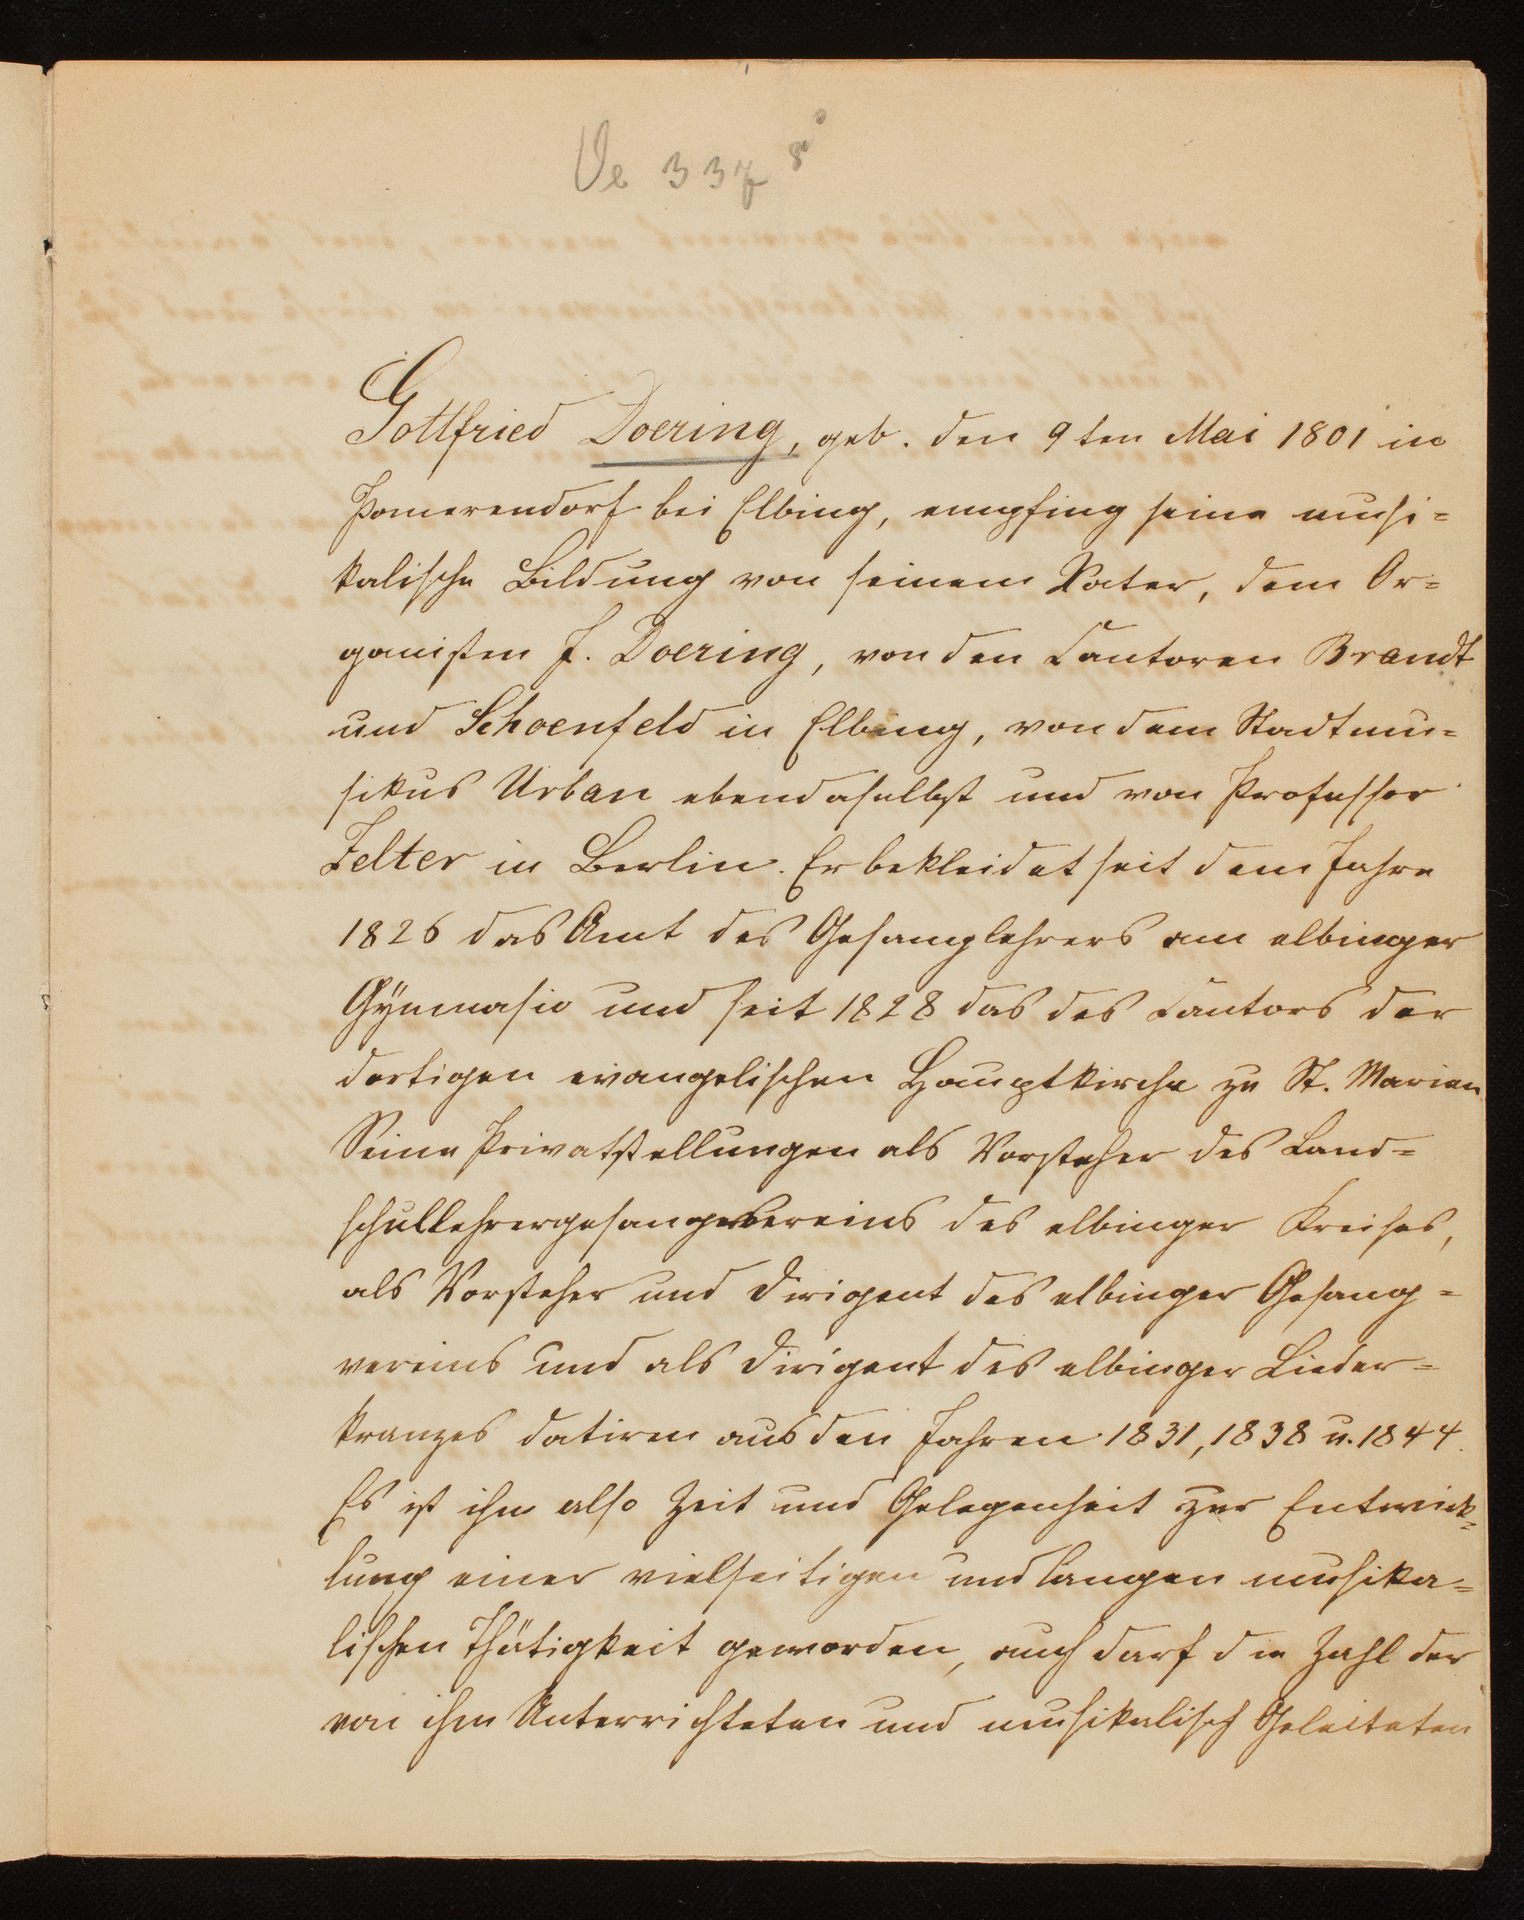 Ve 337 8°
Gottfried Doering, geb. den 9ten Mai 1801 in
Pomerendorf bei Elbing, empfing seine musi=
kalische Bildung von seinem Vater, dem Or=
ganisten J. Doering, von den Cantoren Brandt
und Schoenfeld in Elbing, von dem Stadtmu=
sikus Urban ebendaselbst und von Professor
Zelter in Berlin. Er bekleidet seit dem Jahre
1826 das Amt des Gesanglehrers am elbinger
Gÿmnasio und seit 1828 das des Cantors der
dortigen evangelischen Hauptkirche zu St. Marien
Seine Privatstellungen als Vorsteher des Land=
schullehrergesangvereins des elbinger Kreises,
als Vorsteher und Dirigent des elbinger Gesang=
vereins und als Dirigent des elbinger Lieder=
kranzes datiren aus den Jahren 1831, 1838 u. 1844.
Es ist ihm also Zeit und Gelegenheit zur Entwick=
lung einer vielseitigen und langen musika=
lischen Thätigkeit geworden, auch darf die Zahl der
von ihm Unterrichteten und musikalisch Geleiteten